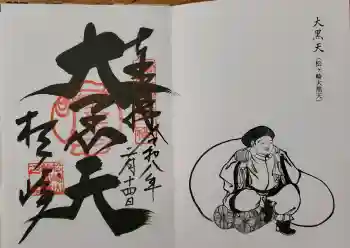 大黒天
(松ヶ崎大黒天)
奉拝
令和八年
二月十四日
大黒天
松ヶ崎